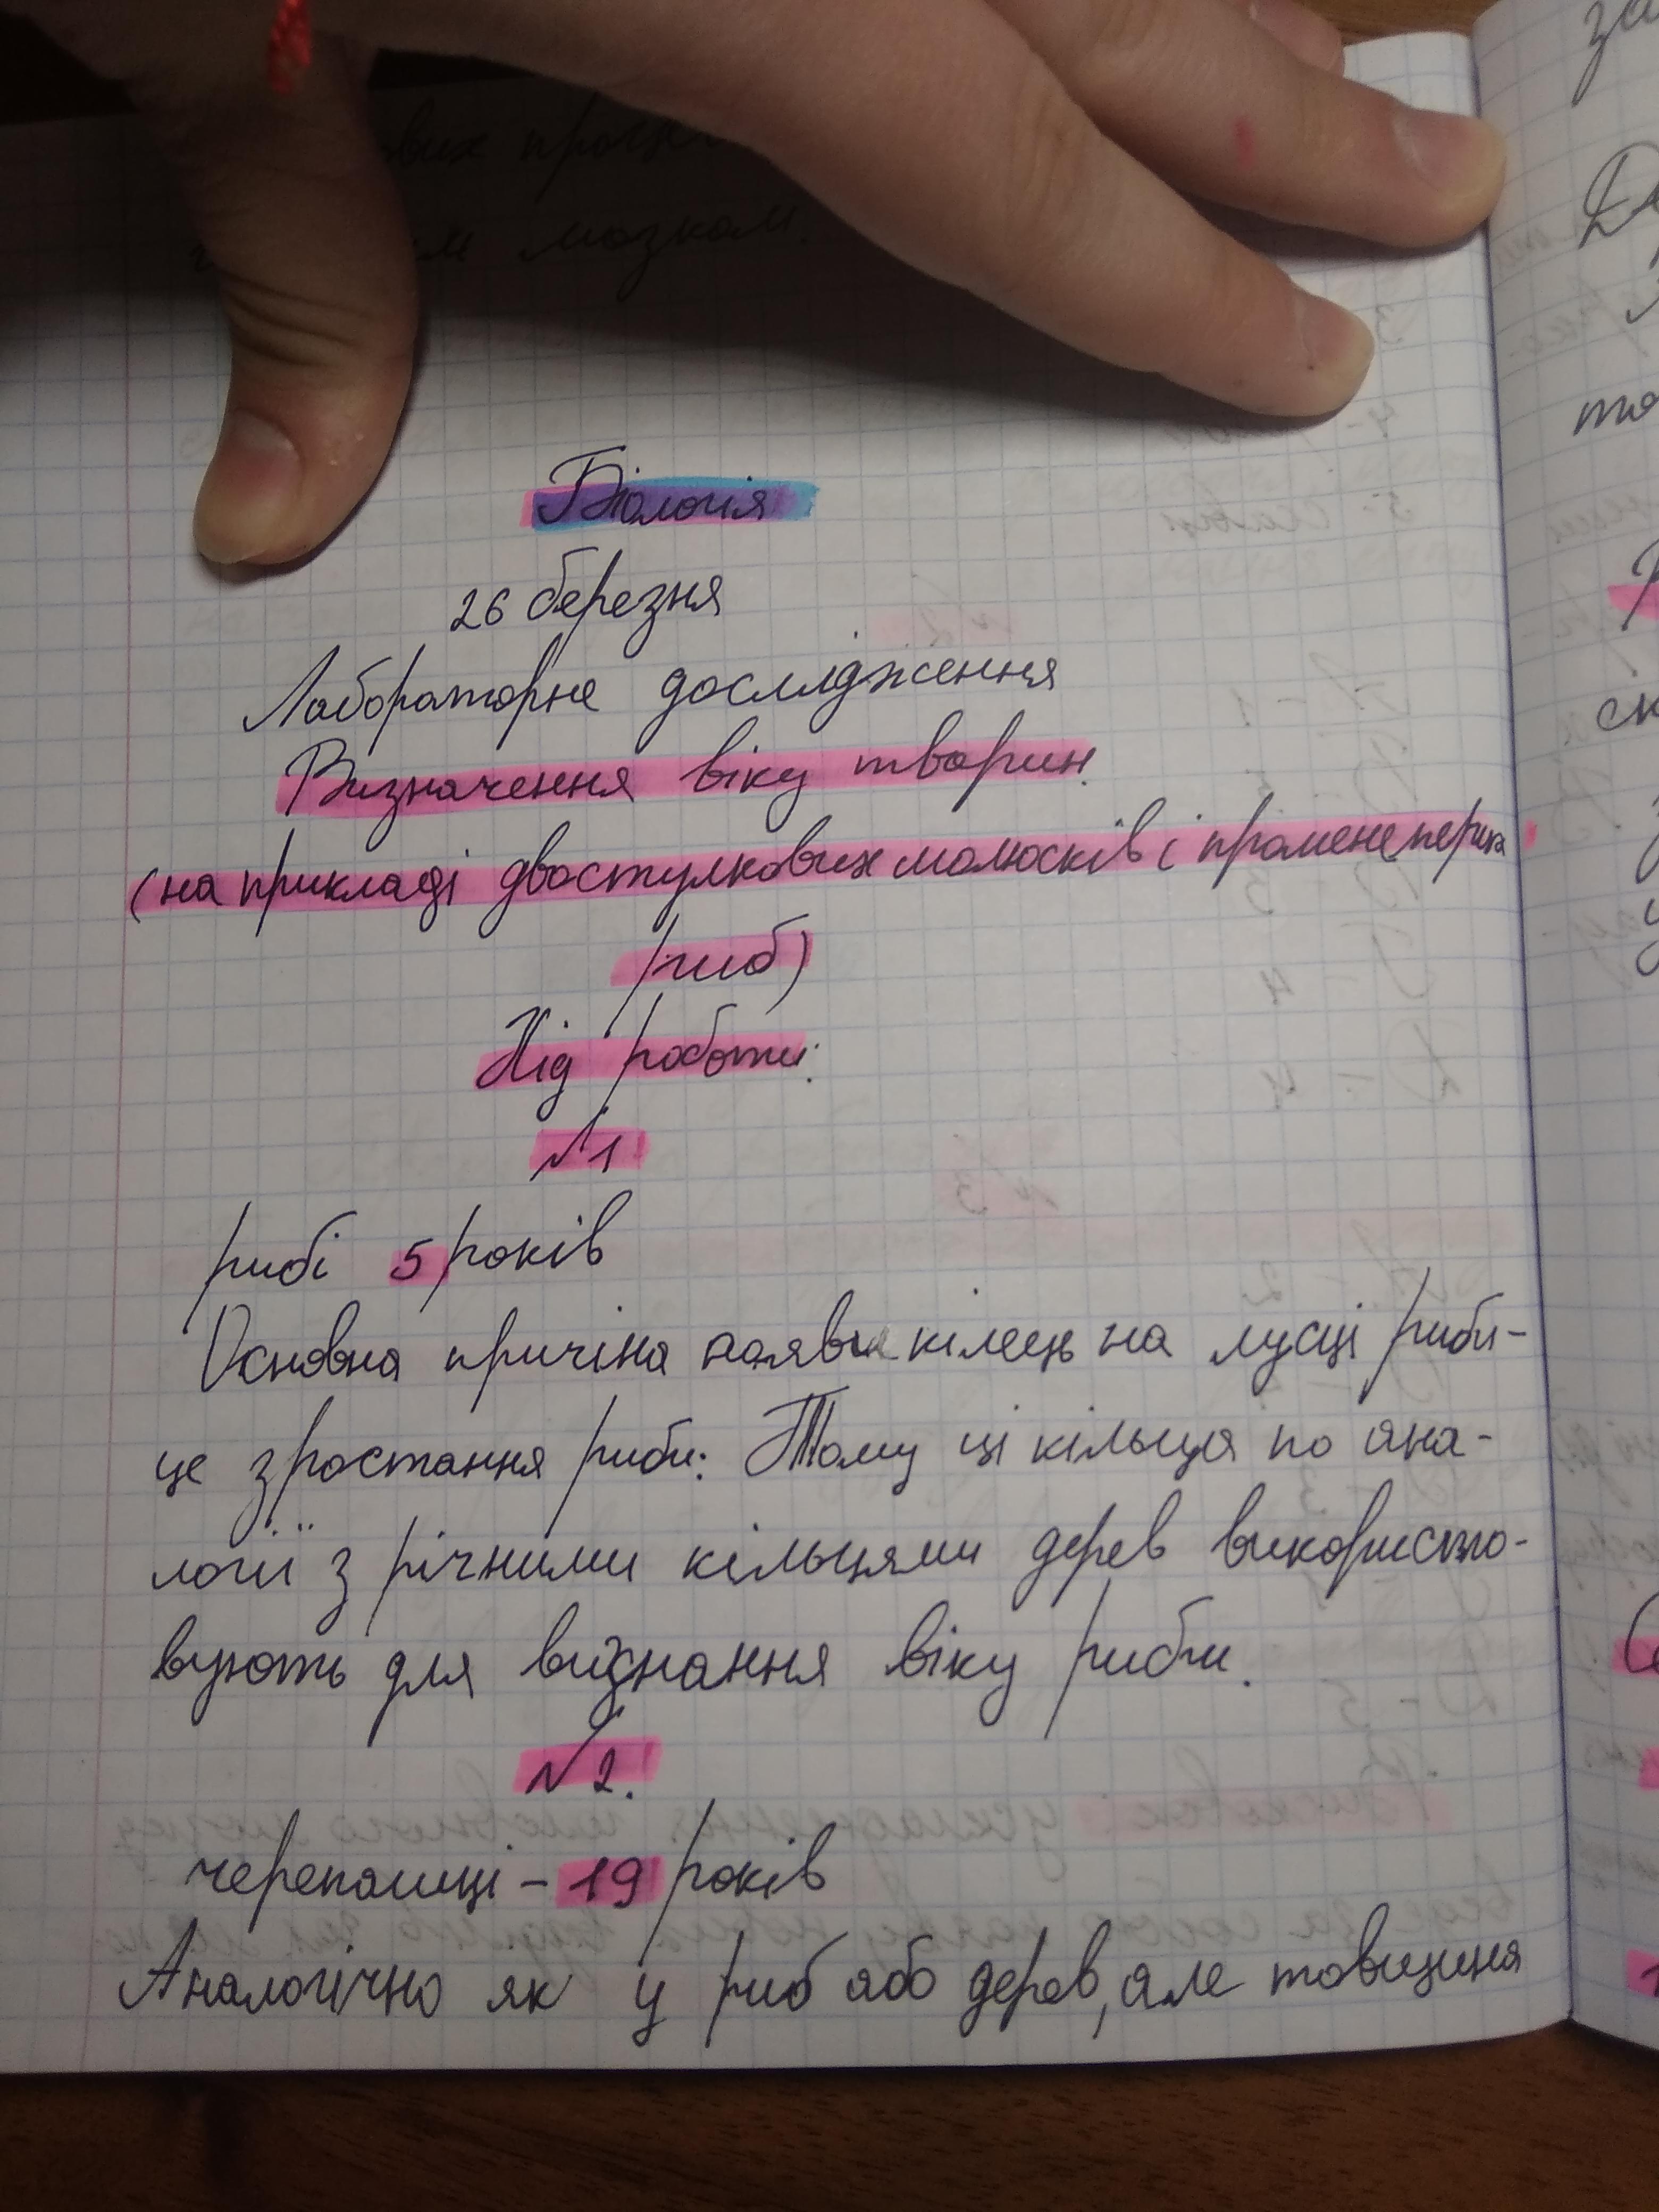 мозком.
Біологія
26 березня
Лабораторне дослідження
Визначення віку тварин
(на прикладі двостулкових молюсків і променеперих
риб)
Хід роботи:
№1
рибі 5 років
Основна причіна появи кілець на лусці риби-
це зростання риби. Тому ці кільця по ана-
логії з річними кільцями дерев використо-
вують для визнання віку риби.
№2.
черепашці - 19 років
Аналогічно як у риб або дерев, але товщина